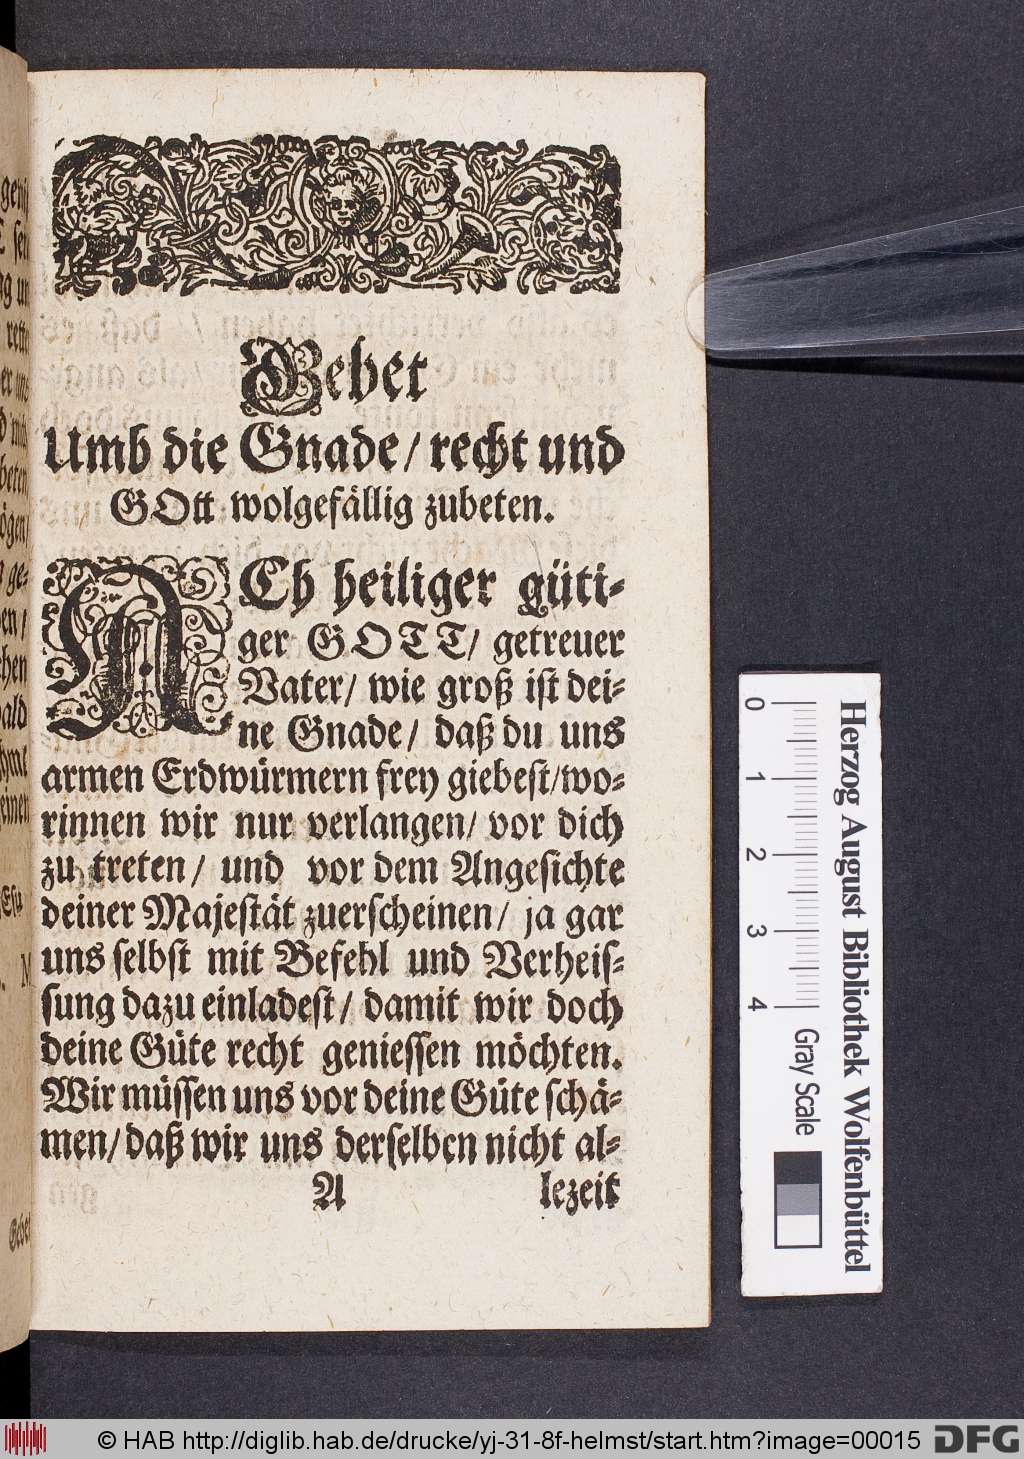 Gebet
Umb die Gnade / recht und
GOtt wolgefällig zubeten.
ACh heiliger güti-
ger GOTT / getreuer
Vater / wie groß ist dei-
ne Gnade / daß du uns
armen Erdwürmern frey giebest / wo-
rinnen wir nur verlangen / vor dich
zu treten / und vor dem Angesichte
deiner Majestät zuerscheinen / ja gar
uns selbst mit Befehl und Verheis-
sung dazu einladest / damit wir doch
deine Güte recht geniessen möchten.
Wir müssen uns vor deine Güte schä-
men / daß wir uns derselben nicht al-
A lezeit
Herzog August Bibliothek Wolfenbüttel
0 1 2 3 4 Gray Scale
© HAB http://diglib.hab.de/drucke/yj-31-8f-helmst/start.htm?image=00015
DFG